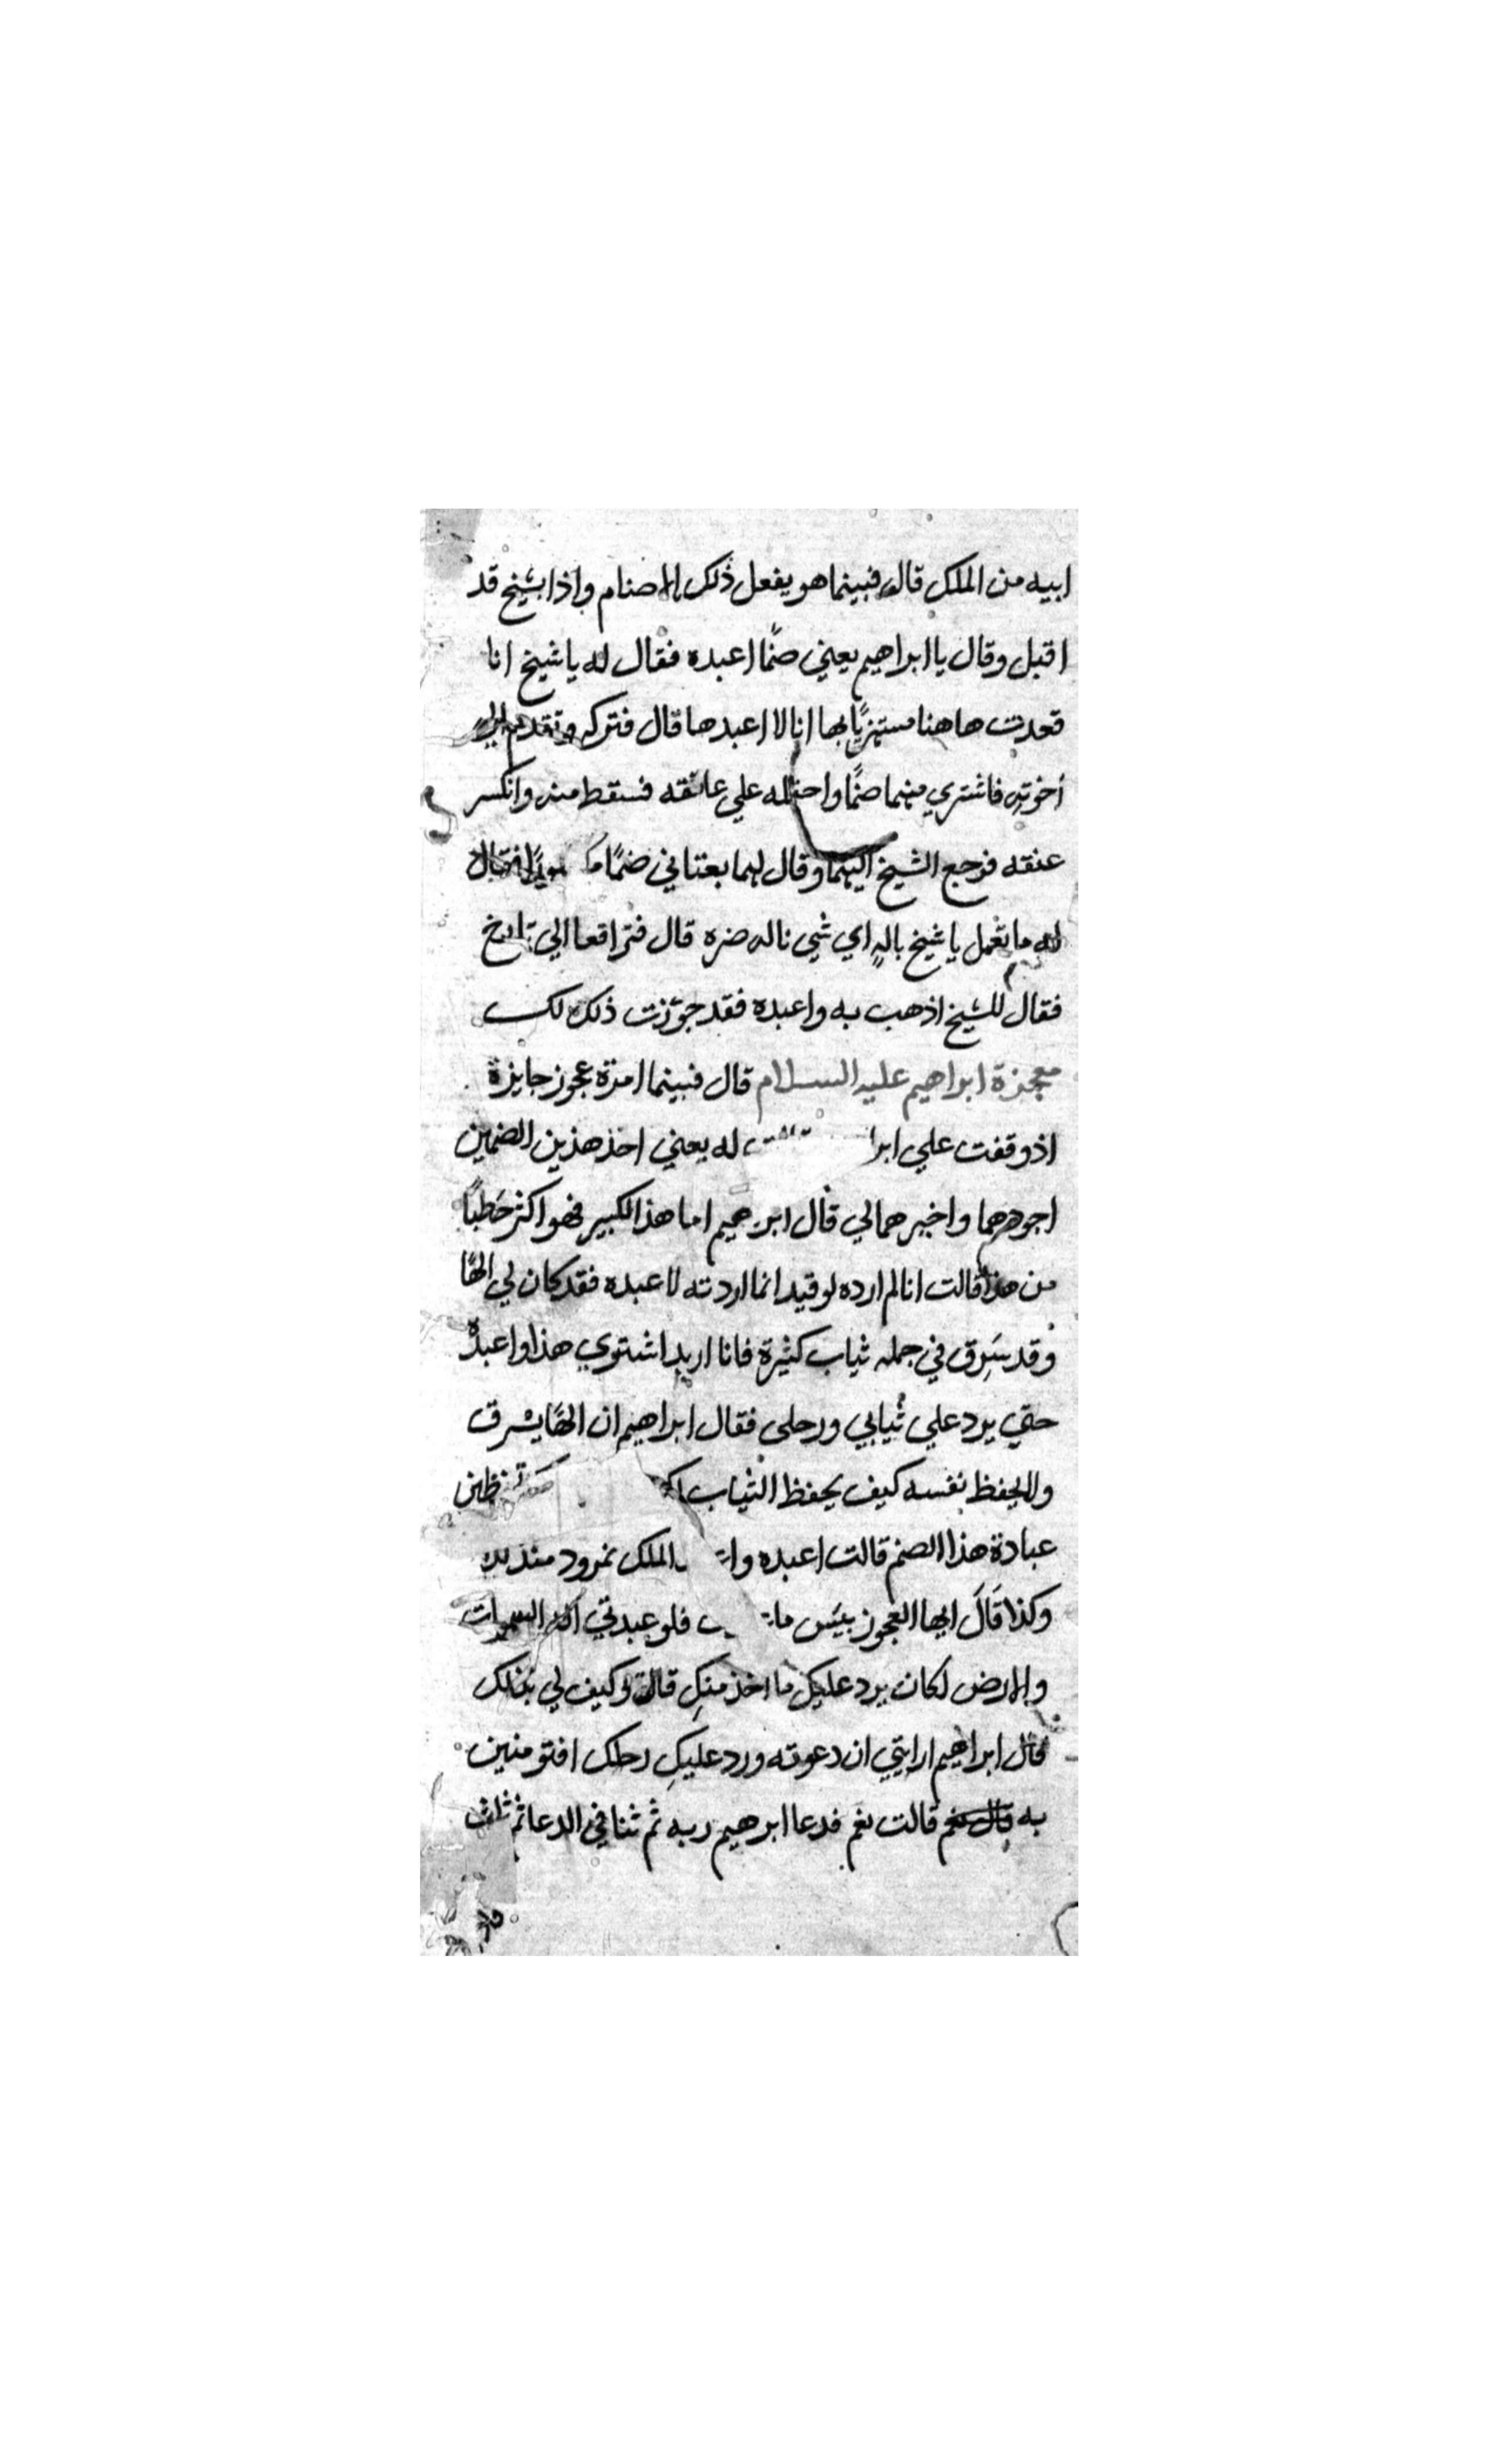 ابيه من الملك قال فبينما هو يفعل ذلك بالاصنام واذا بشيخ قد
اقبل وقال يا ابراهيم بعني صنمًا اعبده فقال له يا شيخ انا
قعدت هاهنا مستهزيًا بها انا لا اعبدها قال فتركه وتقدم الي
اخوته فاشتري منهما صنمًا واحتمله علي عاتقه فسقط منه وانكسر
عنقه فرجع الشيخ اليهما وقال لهما بعتاني صنمًا فقال
له ما تعمل يا شيخ باله اي شي ناله ضره قال فترافعا الي تارخ
فقال للشيخ اذهب به واعبده فقد جوّزت ذلك لك
معجزة ابراهيم عليه السلام قال فبينما امرة عجوز جايزة
اذ وقفت علي له بعني احد هذين الصنمين
اجودهما واخيرهما لي قال ابرهيم اما هذا الكبير فهو اكثر حَطبًا
من هذا قالت انا لم ارده لوقيد انما اردته لاعبده فقد كان لي الهًا
وقد سَرِق في جمله ثياب كثيرة فانا اريد اشتري هذا واعبدُه
حتي يرد علي ثيابي ورحلي فقال ابراهيم ان الهًا يسرق
ولا يحفظ نفسه كيف يحفظ الثياب تظنين
عبادة هذا الصنم قالت اعبده الملك نمرود منذ
وكذا قَالَ ايها العجوز بيَس فلو عبدتي اله السموات
والارض لكان يرد عليكِ ما اخذ منكِ قالت وكيف لي بذلك
قال ابراهيم ارايتي ان دعوته ورد عليكِ رحلك افتومنين
به قال نعم قالت نعم فدعا ابرهيم ربه ثم ثنا في الدعا ثم ثلث